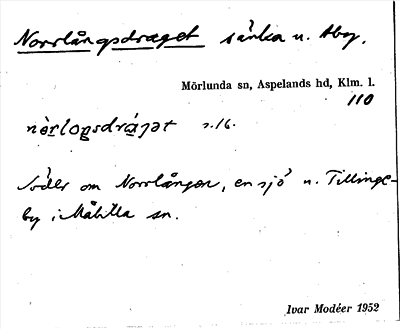 Norrlångsdraget sänka u. Åby.
Mörlunda sn, Aspelands hd, Klm. l.
110
nòrloŋsdràgət s. 16.
Söder om Norrlången, en sjö u. Tillinge-
by i Målilla sn.
Ivar Modéer 1952